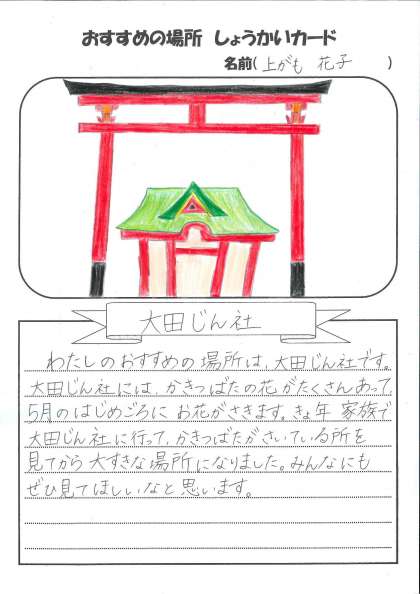 おすすめの場所 しょうかいカード
名前( 上がも 花子 )
大田じん社
わたしのおすすめの場所は、大田じん社です。
大田じん社には、かきつばたの花がたくさんあって
5月のはじめごろに お花がさきます。きょ年 家族で
大田じん社に行って、かきつばたがさいている所を
見てから 大すきな場所になりました。みんなにも
ぜひ見てほしいなと思います。